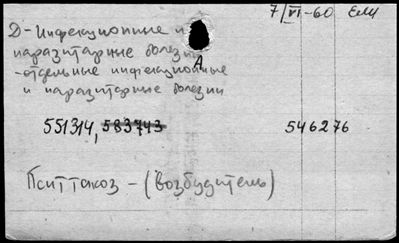 7/VI-60 Ели
Д-Инфекционные и
паразитарные болезни
А
-отдельные инфекционные
и паразитарные болезни
551314, 583743
546276
Пситтакоз - (возбудитель)